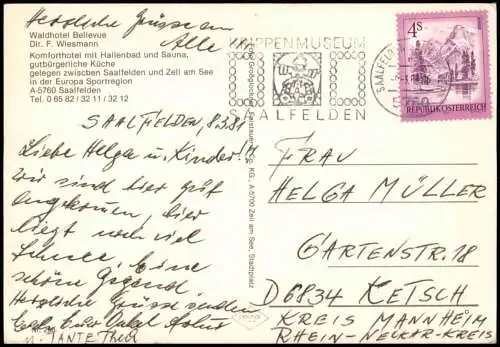 Herzliche Grüsse an Alle
Waldhotel Bellevue
Dir. F. Wiesmann
Komforthotel mit Hallenbad und Sauna,
gutbürgerliche Küche
gelegen zwischen Saalfelden und Zell am See
in der Europa Sportregion
A-5760 Saalfelden
Tel. 0 65 82 / 32 11 / 32 12
SAALFELDEN, 8.3.81
Liebe Helga u. Kinder!
Wir sind hier gut
angekommen, hier
liegt noch viel
Schnee. Eine
schöne Gegend.
Herzliche Grüsse senden
Onkel
u. TANTE Thea
KRIPPENMUSEUM
SAALFELDEN
SAALFELDEN
4S
REPUBLIK ÖSTERREICH
KG, A-5700 Zell am See, Stadtplatz
FRAU
HELGA MÜLLER
GARTENSTR. 18
D6834 KETSCH
KREIS MANNHEIM
RHEIN-NECKAR-KREIS